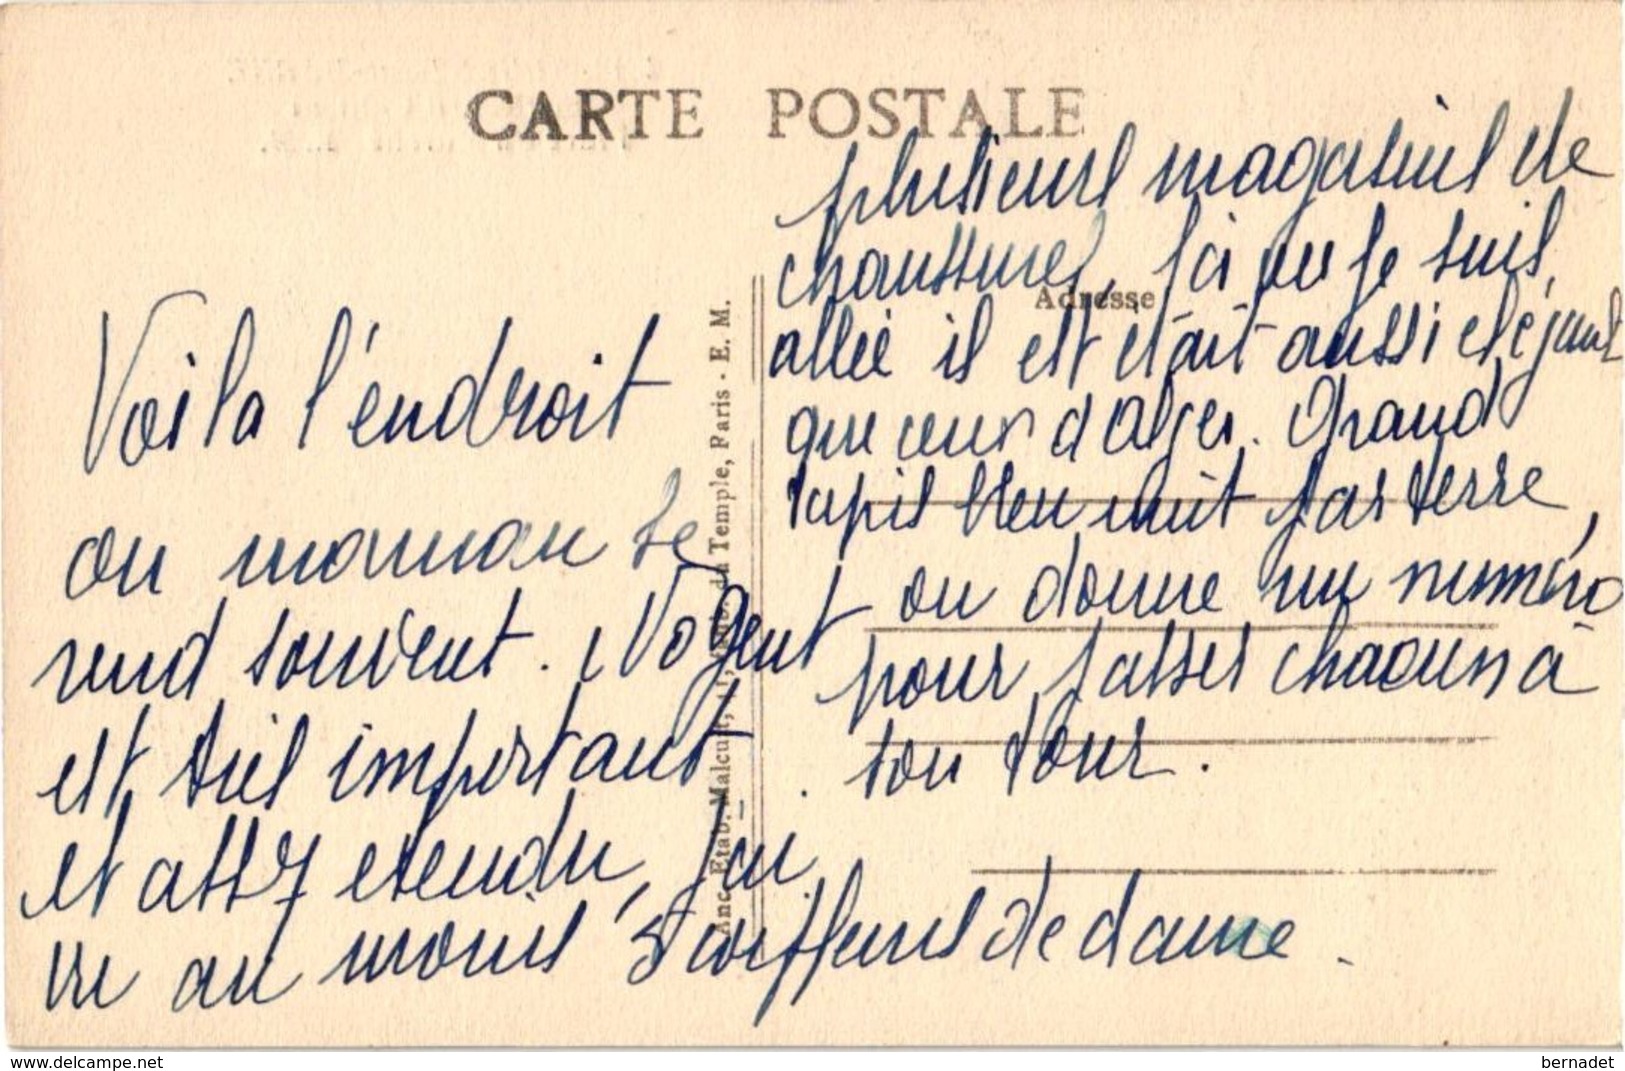 CARTE POSTALE
Voila l'endroit
ou maman se
rend souvent. Nogent
est très important.
et assez etendu, j'ai
vu au moins 5 coiffeurs de dame.
plusieurs magasins de
chaussures, ici ou je suis
allée il est était aussi elégant
que ceux d'Alger. Grand
tapis bleu nuit par terre,
on donne un numéro
pour passer chacun à
son tour.
Adresse
Anc. Etab. Malcuit, 41, du Temple, Paris - E. M.
delcampe.net
bernadet